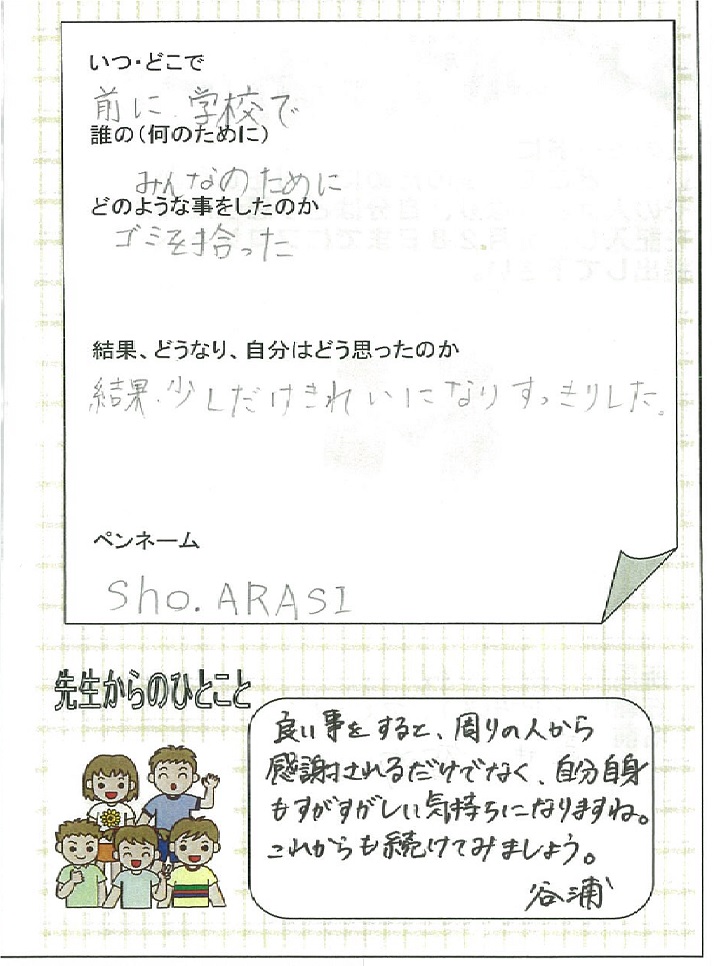 いつ・どこで
前に、学校で
誰の(何のために)
みんなのために
どのような事をしたのか
ゴミを拾った
結果、どうなり、自分はどう思ったのか
結果、少しだけきれいになりすっきりした。
ペンネーム
Sho. ARASI
先生からのひとこと
良い事をすると、周りの人から
感謝されるだけでなく、自分自身
もすがすがしい気持ちになりますね。
これからも続けてみましょう。
谷浦